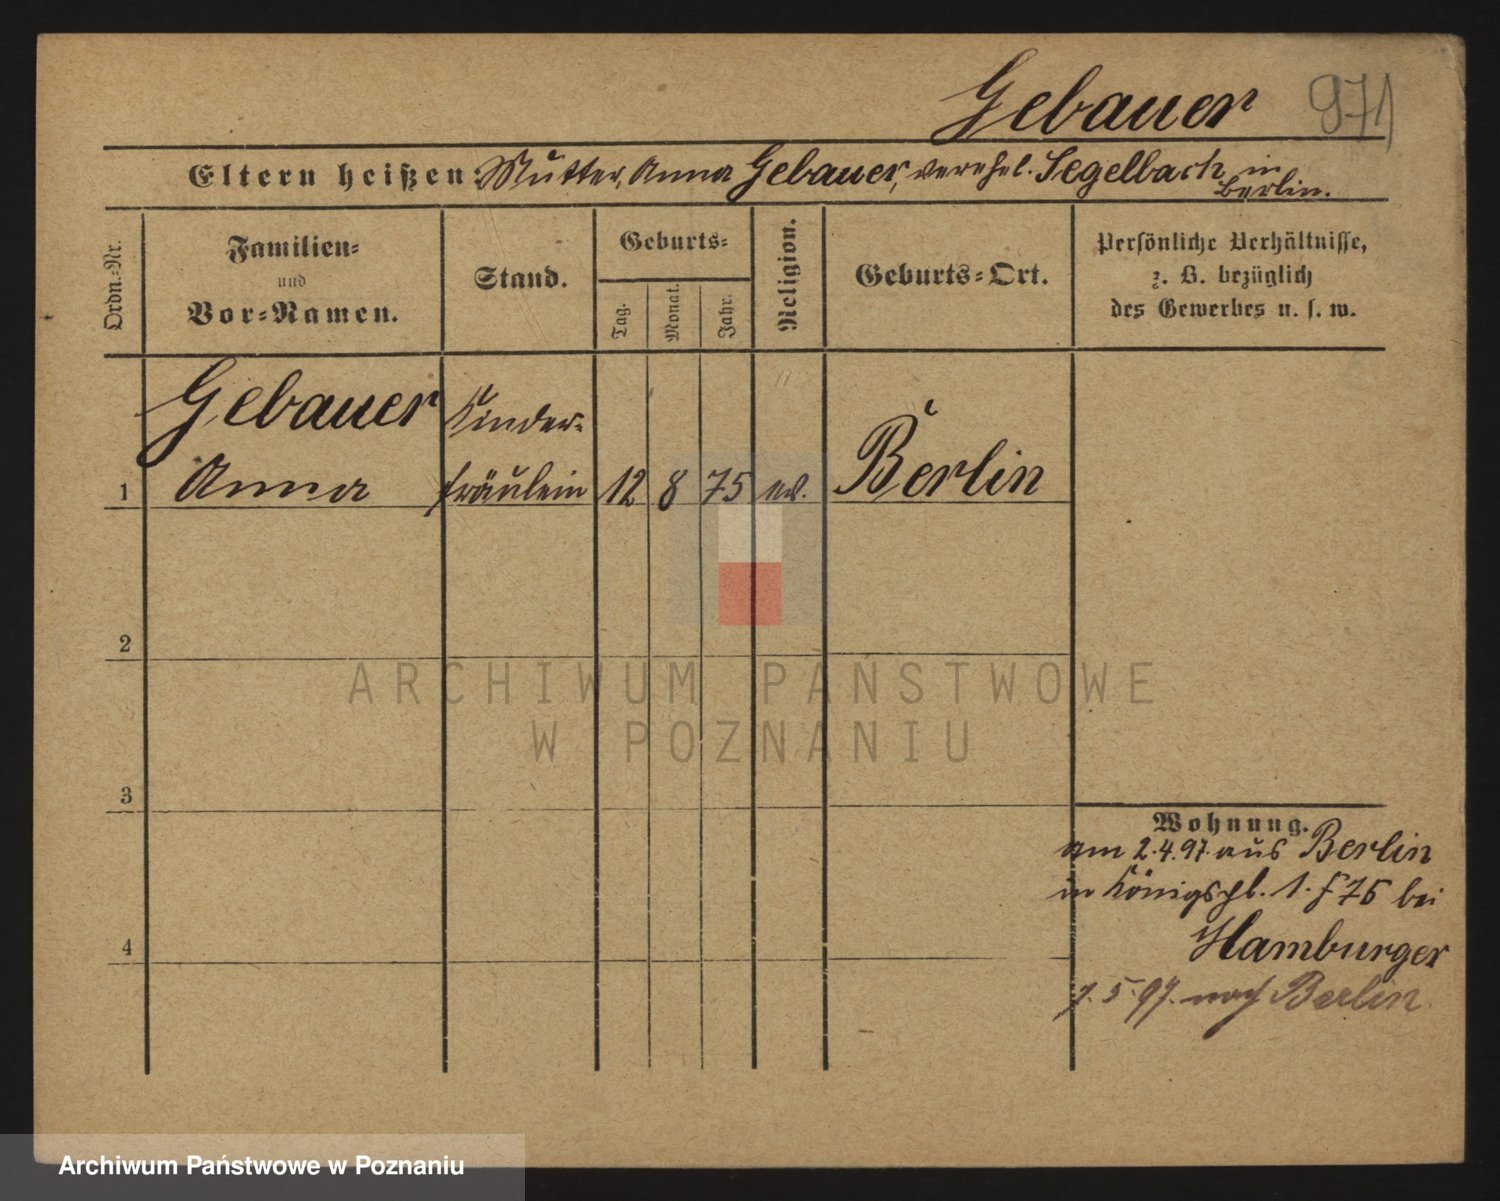 Gebauer 971
Eltern heißen: Mutter, Anna Gebauer, verehel. Segelbach in
Berlin.
Ordn.-Nr.
Familien-
und
Vor-Namen.
Stand.
Geburts-
Tag.
Monat.
Jahr.
Religion.
Geburts-Ort.
Persönliche Verhältnisse,
z. B. bezüglich
des Gewerbes u. s. w.
Gebauer Kinder-
1 Anna fräulein 12 8 75 ev. Berlin
2
3
4
Wohnung.
am 2.4.97. aus Berlin
in Königspl. 1. f 75 bei
Hamburger
7.5.97. nach Berlin
ARCHIWUM PAŃSTWOWE
W POZNANIU
Archiwum Państwowe w Poznaniu